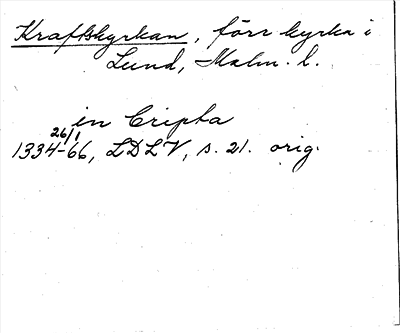 Kraftskyrkan, förr kyrka i
Lund, Malm. l.
in Cripta
26/1
1334-66, LDLV, s. 21. orig.